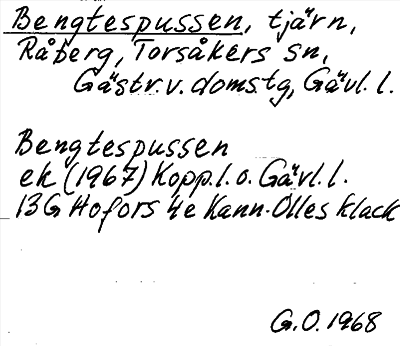 Bengtespussen, tjärn,
Råberg, Torsåkers sn,
Gästr.v. domstg, Gävl. l.
Bengtespussen
ek (1967) Kopp.l. o. Gävl. l.
13G Hofors 4e Kann-Olles klack
G.O. 1968